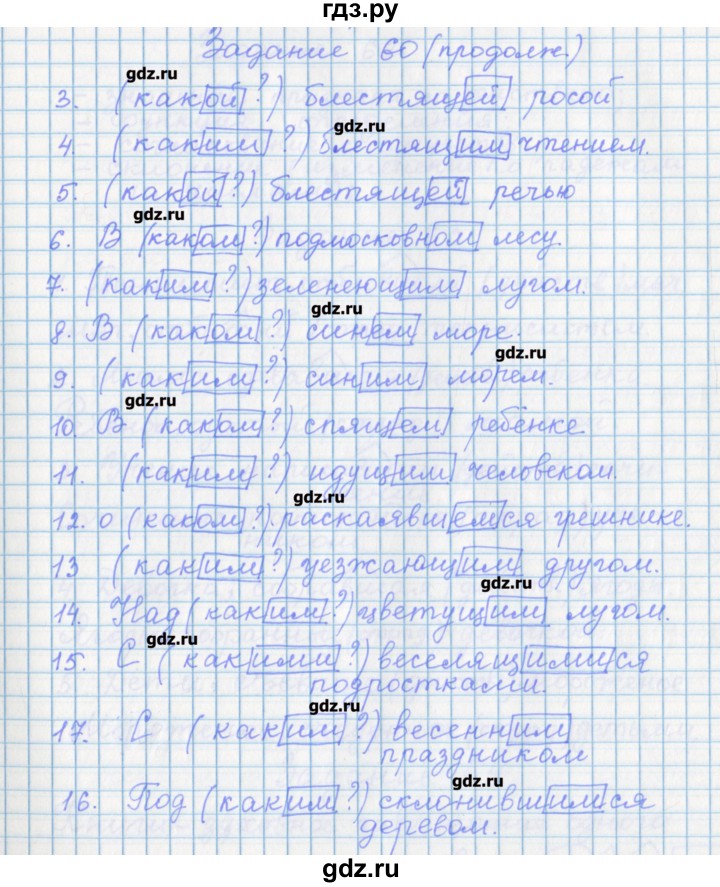 гдз.ру
Задание 60 (продолж.)
gdz.ru
3. (какой?) блестящей росой
gdz.ru
4. (каким?) блестящим чтением.
5. (какой?) блестящей речью
gdz.ru
6. В (каком?) подмосковном лесу.
7. (каким?) зеленеющим лугом.
gdz.ru
8. В (каком?) синем море.
gdz.ru
9. (каким?) синим морем.
gdz.ru
10. В (каком?) спящем ребёнке
11. (каким?) идущим человеком.
gdz.ru
12. о (каком?) раскаявшемся грешнике.
13 (каким?) уезжающим другом.
gdz.ru
14. Над (каким?) цветущим лугом.
gdz.ru
15. С (какими?) веселящимися
подростками.
gdz.ru
17. С (каким?) весенним
праздником
gdz.ru
16. Под (каким?) склонившимся
деревом.
gdz.ru